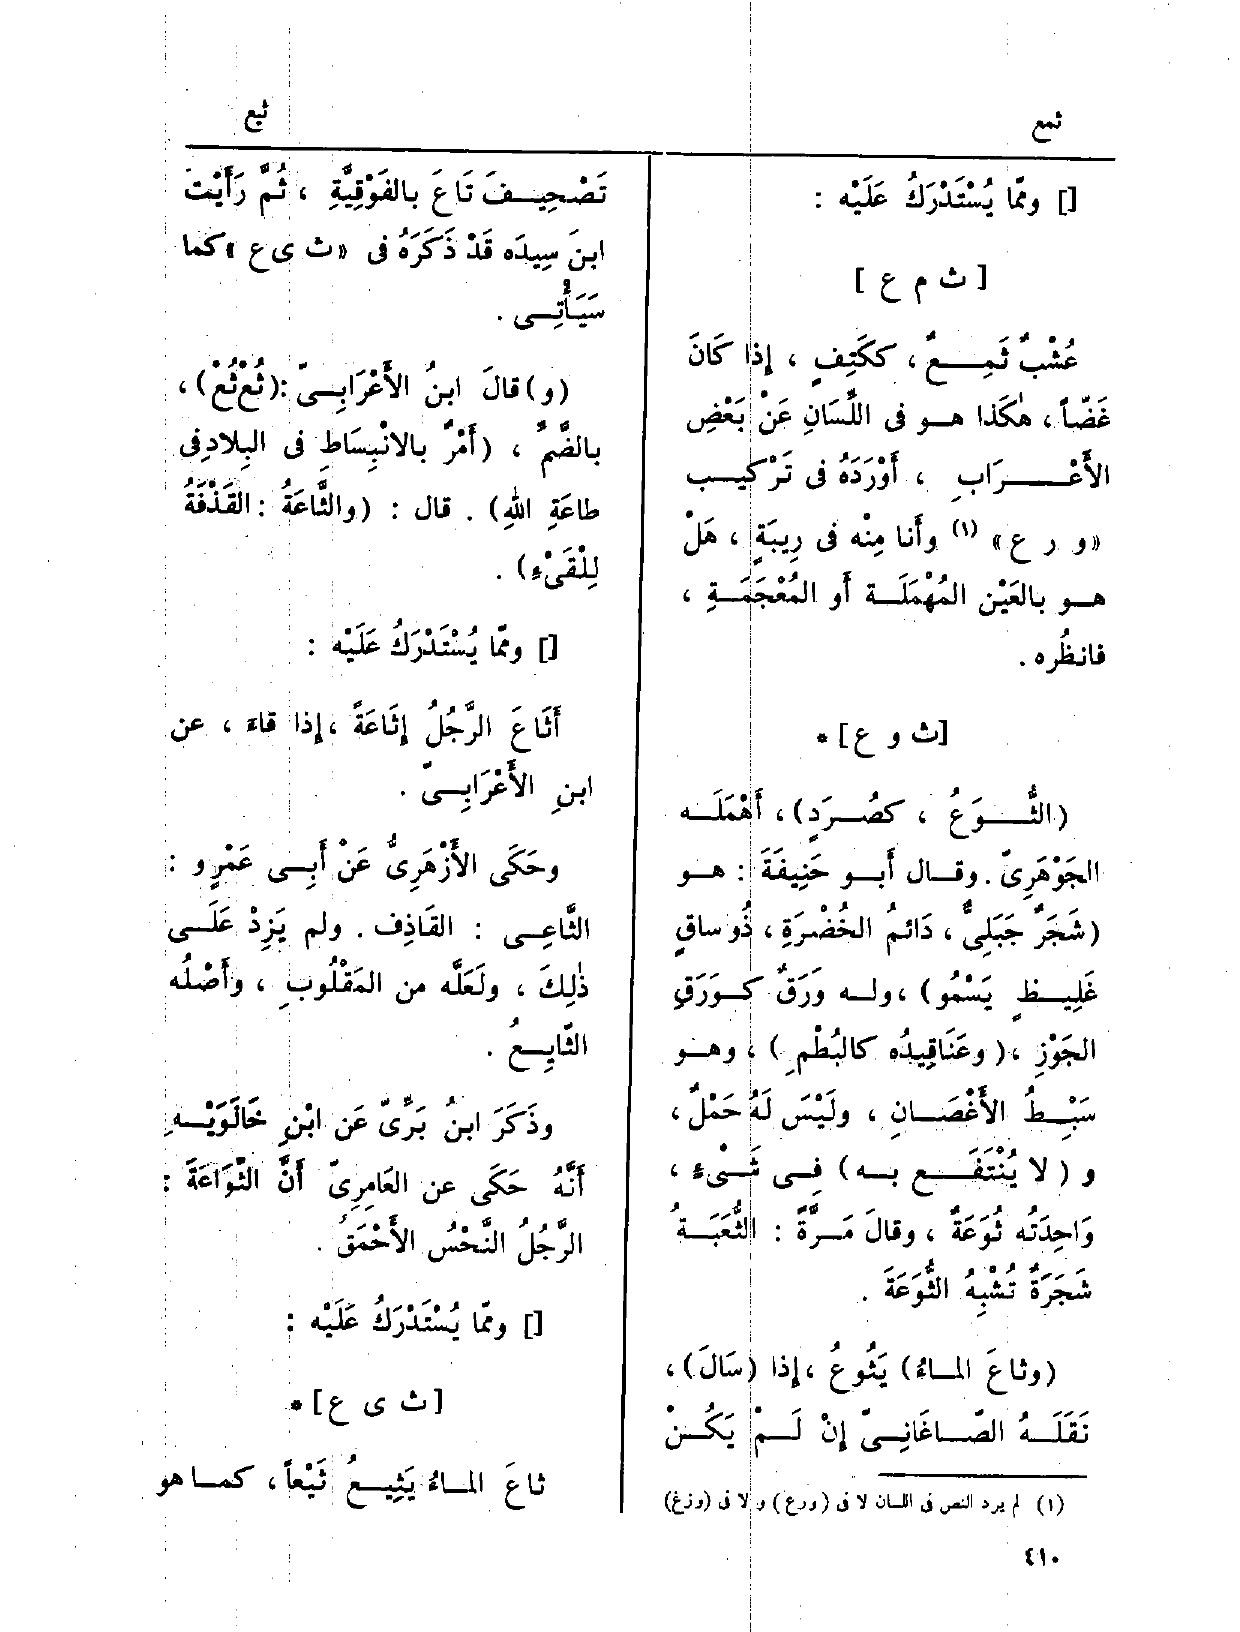 ثمع
ثيع
[] ومّا يُسْتَدْرَكُ عَلَيْه :
[ ث م ع ]
عُشْبٌ ثَمِـعٌ ، ككَتِفٍ ، إذا كَانَ
غَضّاً ، هٰكَذا هو فى اللِّسَانِ عَنْ بَعْضِ
الأَعْرَابِ ، أَوْرَدَهُ فى تَرْكِيب
«و ر ع» (١) وأَنا مِنْه فى رِيبَةٍ ، هَلْ
هو بالعَيْن المُهْمَلَة أَو المُعْجَمَةِ ،
فانظُره .
[ث و ع] *
(الثُّوَعُ ، كصُرَدٍ) ، أَهْمَلَه
الجَوْهَرِىّ . وقال أَبو حَنِيفَةَ : هو
(شَجَرٌ جَبَلِىٌّ ، دَائمُ الخُضْرَةِ ، ذُو ساقٍ
غَلِيظٍ يَسْمُو) ، وله وَرَقٌ كوَرَقِ
الجَوْزِ ، (وعَنَاقِيدُه كالبُطْمِ) ، وهو
سَبْطُ الأَغْصَانِ ، ولَيْسَ لَهُ حَمْلٌ ،
و ( لا يُنْتَفَع به ) فِى شَىْءٍ ،
وَاحِدَتُه ثُوَعَةٌ ، وقالَ مَرَّةً : الثُّعَبَةُ
شَجَرَةٌ تُشْبِهُ الثُّوَعَةَ .
(وثاعَ الماءُ) يَثُوعُ ، إذا (سَالَ) ،
نَقَلَهُ الصّاغَانِىّ إِنْ لَمْ يَكُنْ
(١) لم يرد النص فى اللسان لا فى (ورع) ولا فى (وزغ)
٤١٠
تَصْحِيفَ تَاعَ بالفَوْقِيَّةِ ، ثُمَّ رَأَيْتُ
ابنَ سِيدَه قَدْ ذَكَرَهُ فى «ث ى ع» كما
سَيَأْتِى .
(و) قالَ ابنُ الأَعْرَابِىّ : (ثُعْ ثُعْ) ،
بالضَّمِّ ، (أَمْرٌ بالانْبِسَاطِ فى البِلادِ فى
طاعَةِ اللهِ) . قال : (والثَّاعَةُ : القَذْفَةُ
لِلْقَىْءِ) .
[] ومّا يُسْتَدْرَكُ عَلَيْه :
أَثَاعَ الرَّجُلُ إِثَاعَةً ، إذا قاءَ ، عن
ابنِ الأَعْرَابِىّ .
وحَكَى الأَزْهَرِىُّ عَنْ أَبِى عَمْرٍو :
الثَّاعِى : القَاذِف . ولم يَزِدْ عَلَى
ذٰلِكَ ، ولَعَلَّه من المَقْلُوبِ ، وأَصْلُه
الثّايِعُ .
وذَكَرَ ابنُ بَرِّىّ عَن ابْنِ خَالَوَيْهِ
أَنَّهُ حَكَى عن العَامِرِىّ أَنَّ الثَّوَاعَةَ :
الرَّجُلُ النَّحْسُ الأَحْمَقُ .
[] ومّا يُسْتَدْرَكُ عَلَيْه :
[ث ى ع] *
ثاعَ الماءُ يَثِيعُ ثَيْعاً ، كما هو